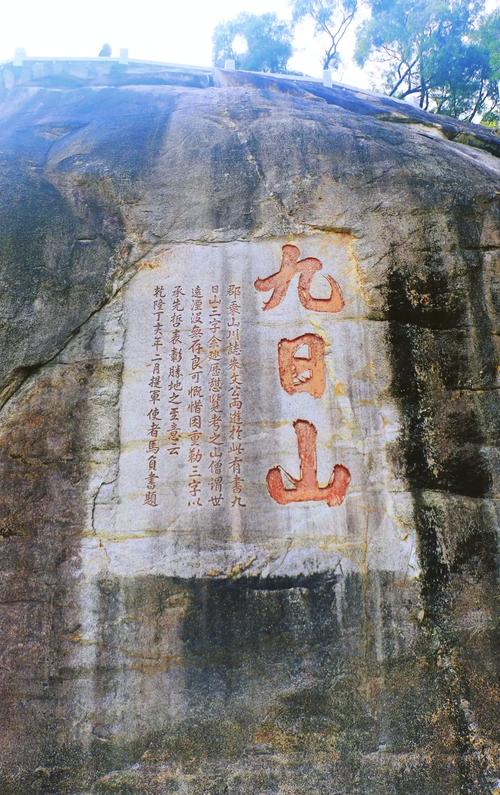 九日山
郡乘山川誌朱文公両遊於此有書九
日山三字余遊歷覽考之山僧謂世
遠湮沒無存良可慨惜因重勒三字以
承先哲表彰勝地之至意云
乾隆丁亥年二月提軍使者馬負書題